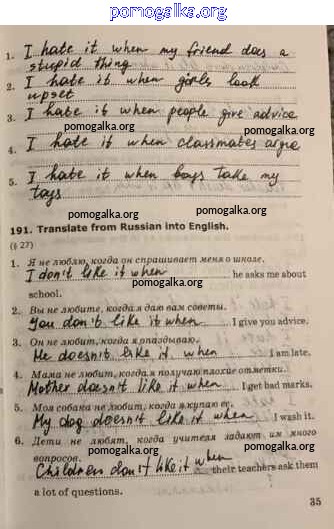 pomogalka.org
1. I hate it when my friend does a
stupid thing
2. I hate it when girls look
upset
3. I hate it when people give advice
pomogalka.org pomogalka.org
4. I hate it when classmates argue
pomogalka.org
5. I hate it when boys take my
toys
pomogalka.org
191. Translate from Russian into English.
(§ 27)
1. Я не люблю, когда он спрашивает меня о школе.
I don't like it when he asks me about
pomogalka.org
school.
2. Вы не любите, когда я даю вам советы.
You don't like it when I give you advice.
3. Он не любит, когда я опаздываю.
He doesn't like it when I am late.
pomogalka.org pomogalka.org
4. Мама не любит, когда я получаю плохие отметки.
Mother doesn't like it when I get bad marks.
5. Моя собака не любит, когда я купаю ее.
My dog doesn't like it when I wash it.
6. Дети не любят, когда учителя задают им много
вопросов.
Children don't like it when their teachers ask them
pomogalka.org
a lot of questions.
35
pomogalka.org